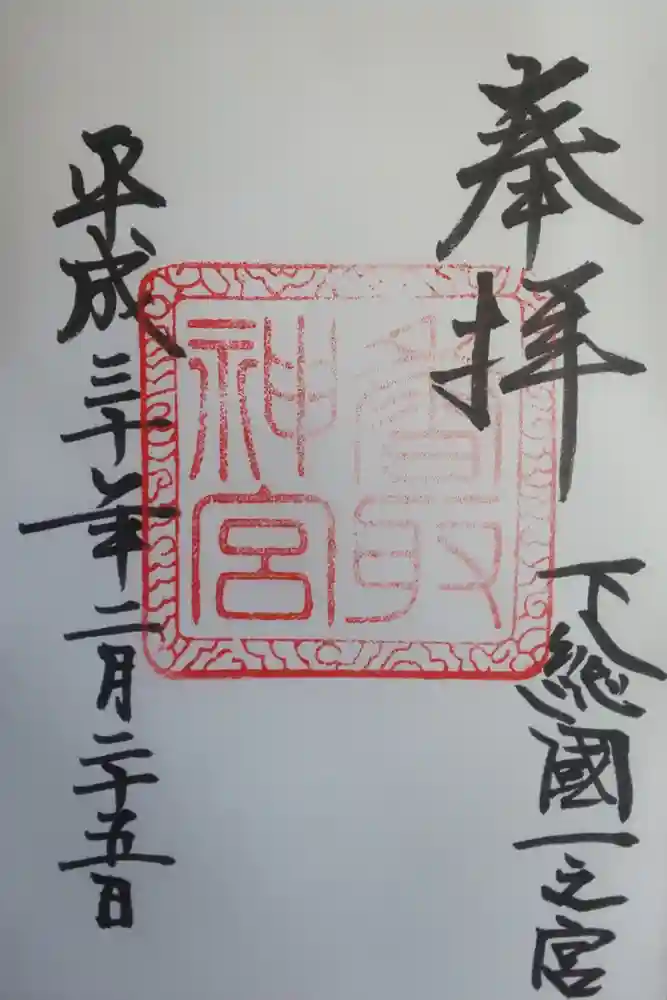 奉拝
下総國一之宮
香取
神宮
平成三十一年二月二十五日